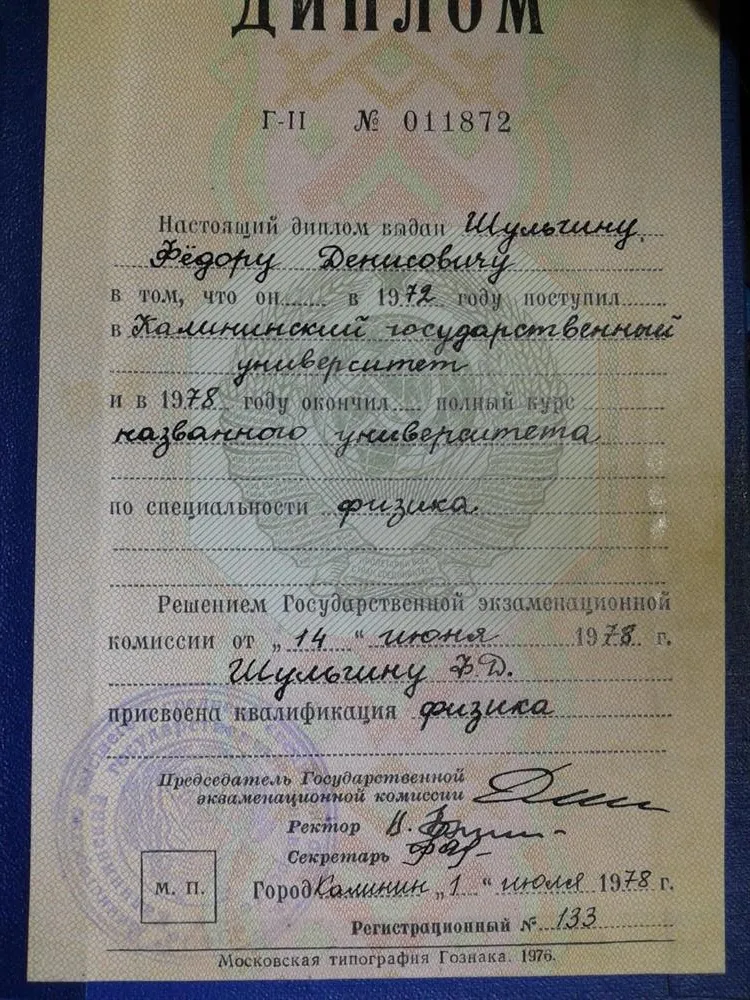 ДИПЛОМ
Г-II № 011872
Настоящий диплом выдан Шульгину
Фёдору Денисовичу
в том, что он в 1972 году поступил
в Калининский государственный
университет
и в 1978 году окончил полный курс
названного университета
по специальности физика.
Решением Государственной экзаменационной
комиссии от „14“ июня 1978 г.
Шульгину Ф.Д.
присвоена квалификация физика
Председатель Государственной
экзаменационной комиссии
Ректор
Секретарь
М. П.
Город Калинин „1“ июля 1978 г.
Регистрационный № 133
Московская типография Гознака. 1976.